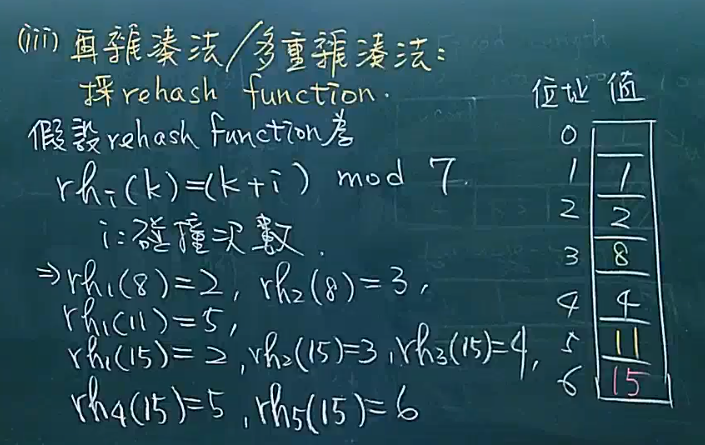 (iii) 再雜湊法/多重雜湊法:
採rehash function.
假設rehash function為
rhi(k)=(k+i) mod 7.
i:碰撞次數.
⇒rh1(8)=2, rh2(8)=3,
rh1(11)=5,
rh1(15)=2, rh2(15)=3, rh3(15)=4,
rh4(15)=5, rh5(15)=6
位址 值
0
1 1
2 2
3 8
4 4
5 11
6 15